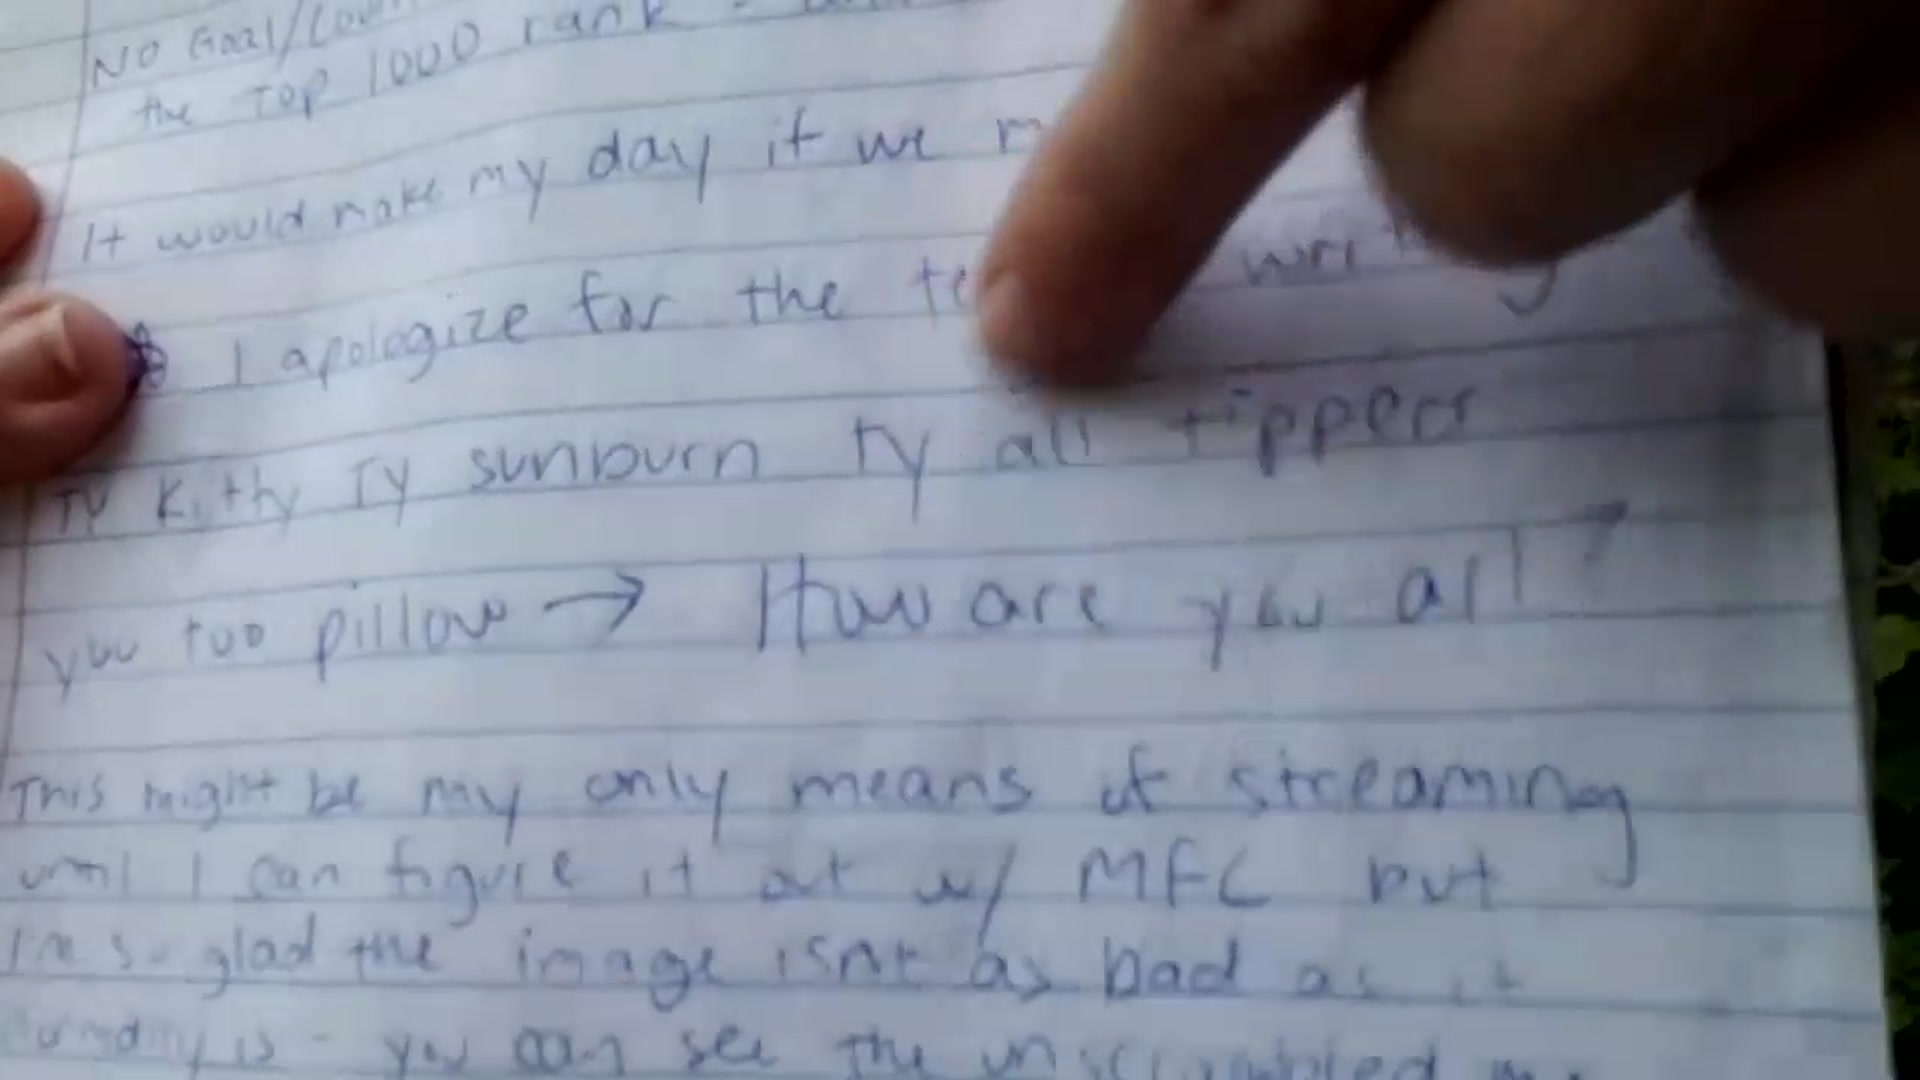 NO Goal/
the TOP 1000 rank -
It would make my day if we
I apologize for the
TY Kitty TY sunburn TY all tippers
you too pillow → How are you all?
This might be my only means of streaming
until I can figure it out w/ MFC but
Im so glad the image isnt as bad as it
is - you can see the unscrambled